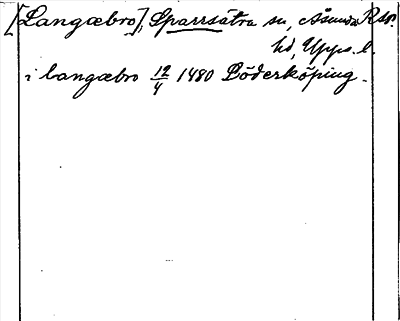 [Langæbro], Sparrsätra sn, Åsunda
hd, Upps. l.
i langæbro 12/4 1480 Söderköping.